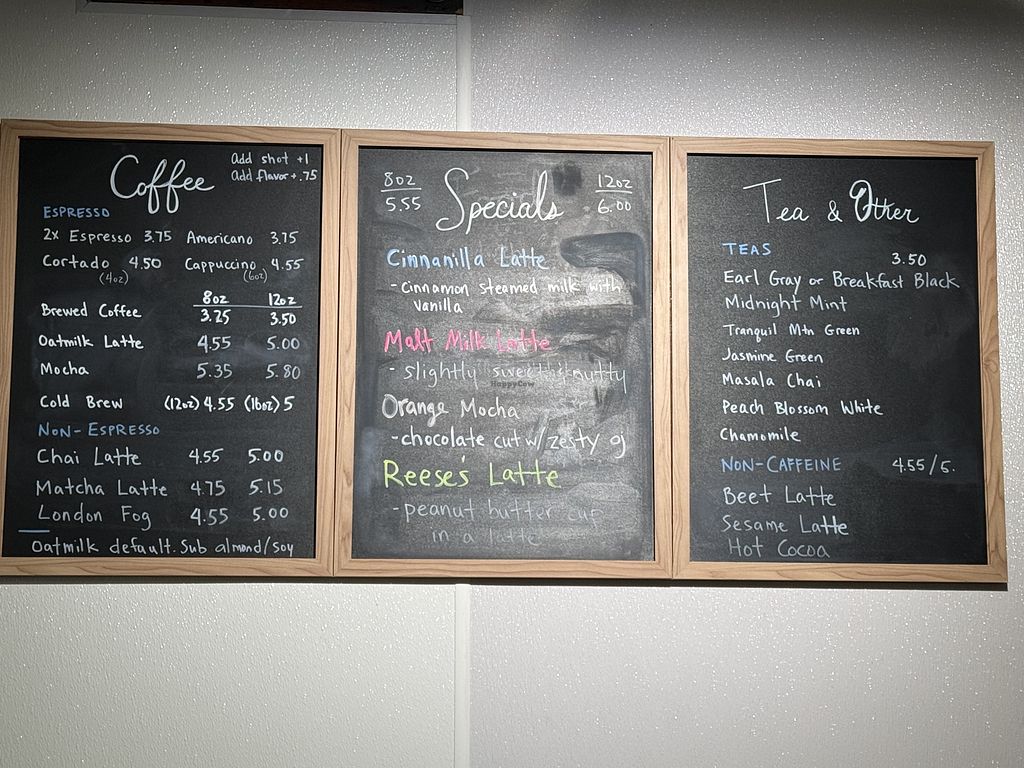 Coffee
Add shot +1
Add flavor + .75
ESPRESSO
2x Espresso 3.75 Americano 3.75
Cortado 4.50 Cappuccino 4.55
(4oz) (6oz)
8oz 12oz
Brewed Coffee 3.25 3.50
Oatmilk Latte 4.55 5.00
Mocha 5.35 5.80
Cold Brew (12oz) 4.55 (16oz) 5
NON-ESPRESSO
Chai Latte 4.55 5.00
Matcha Latte 4.75 5.15
London Fog 4.55 5.00
Oatmilk default. Sub almond/soy
8oz Specials 12oz
5.55 6.00
Cinnanilla Latte
- cinnamon steamed milk with
vanilla
Malt Milk Latte
- slightly sweet & nutty
HappyCow
Orange Mocha
- chocolate cut w/ zesty oj
Reese's Latte
- peanut butter cup
in a latte
Tea & Other
TEAS 3.50
Earl Gray or Breakfast Black
Midnight Mint
Tranquil Mtn Green
Jasmine Green
Masala Chai
Peach Blossom White
Chamomile
NON-CAFFEINE 4.55/5.
Beet Latte
Sesame Latte
Hot Cocoa